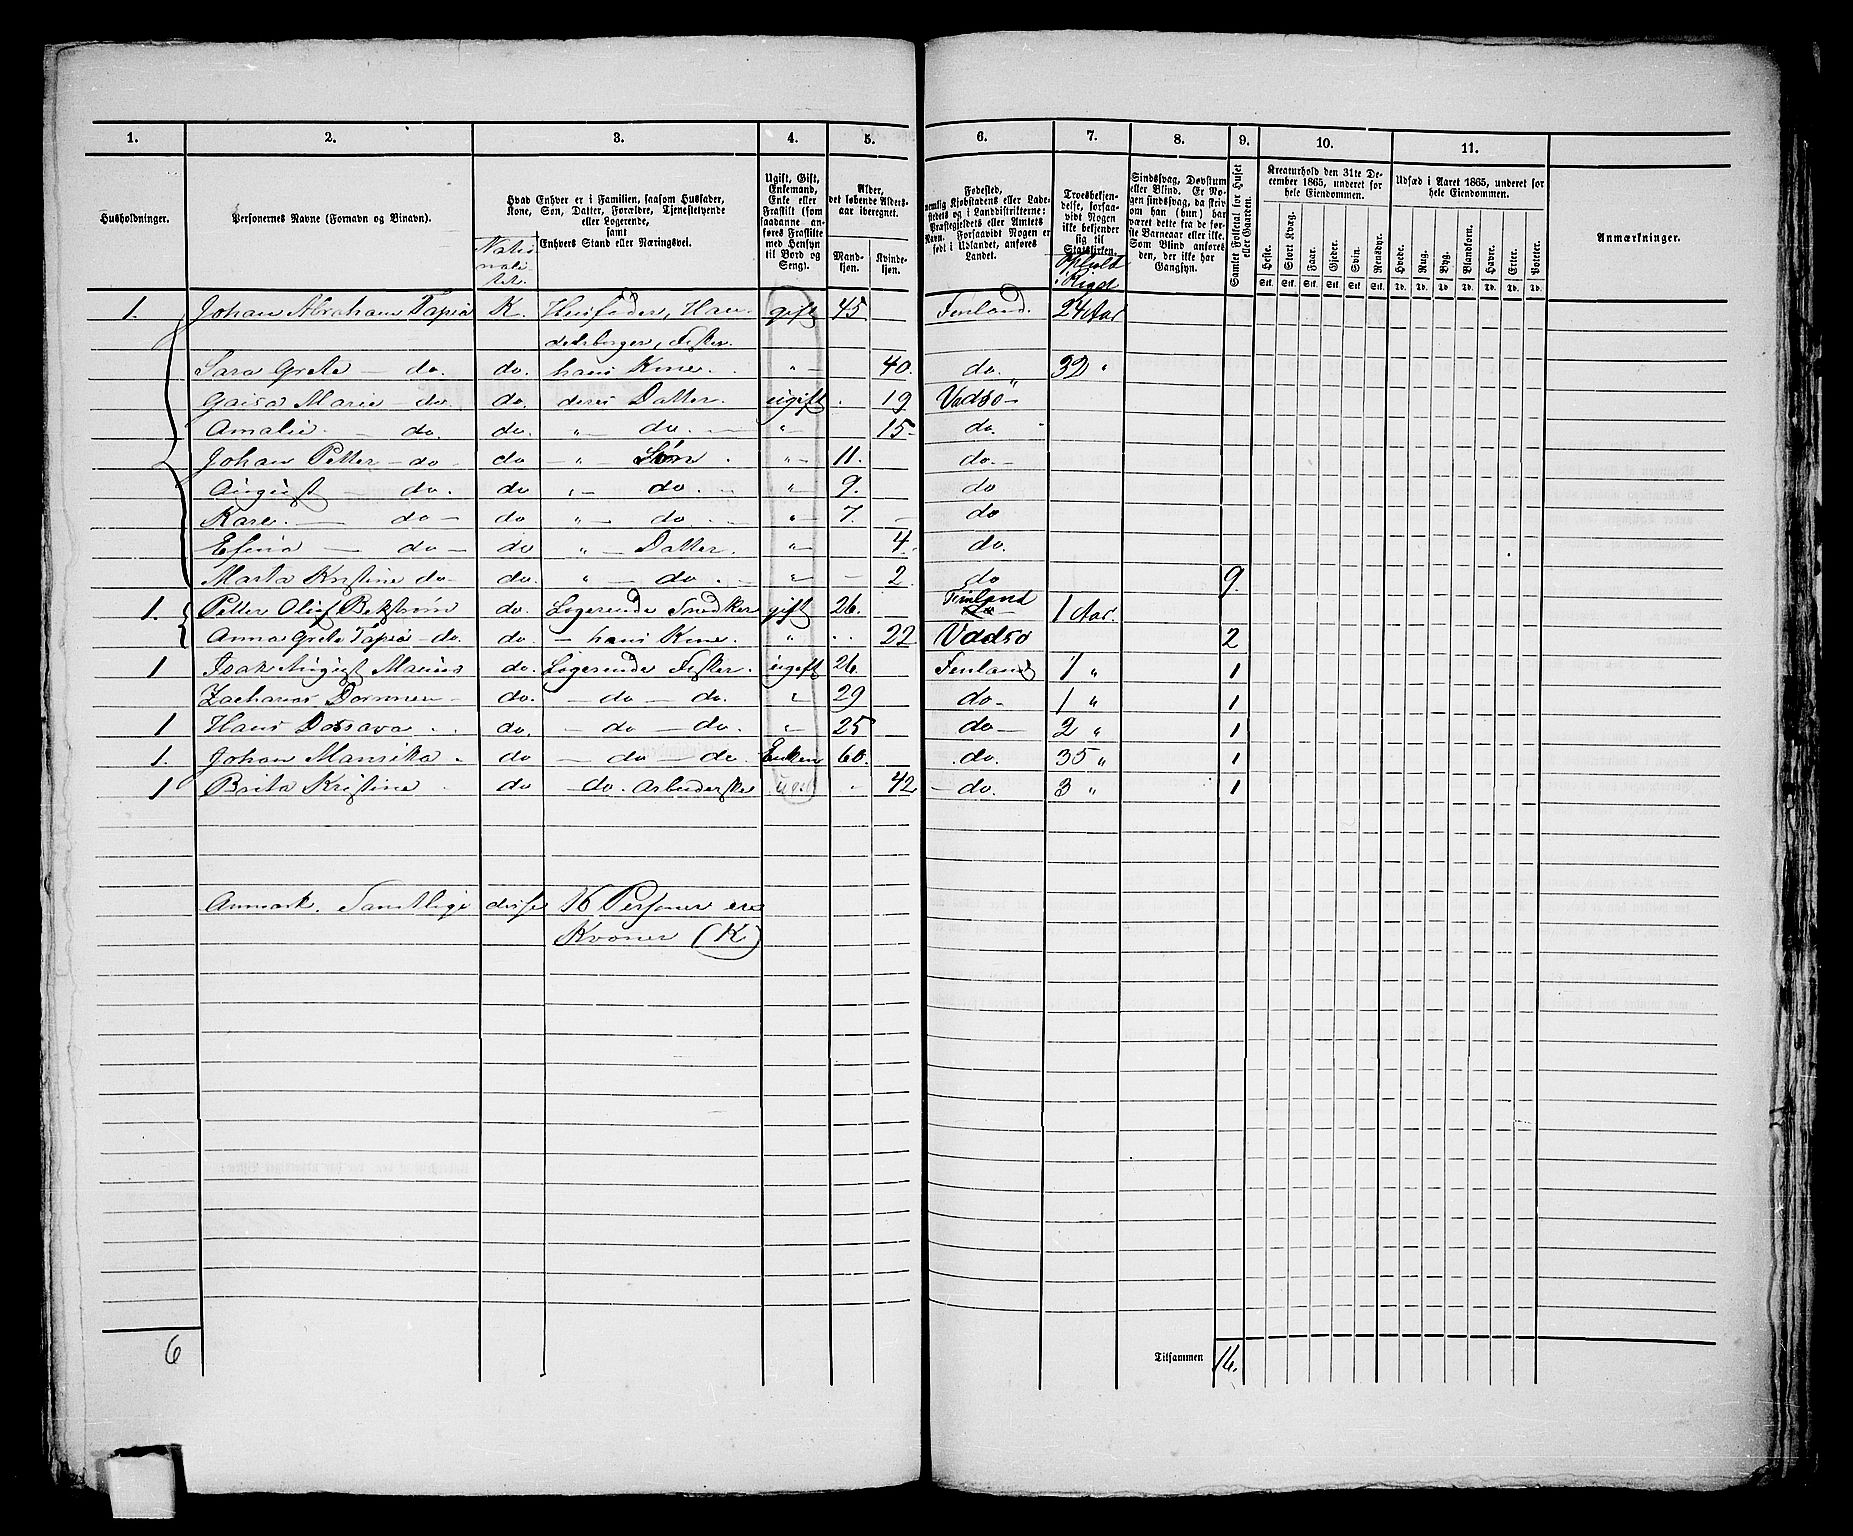 1. 2. 3. 4. 5. 6. 7. 8. 9. 10. 11.
Husholdninger.
Personernes Navne (Fornavn og Binavn).
Hvad Enhver er i Familien, saasom Husfader, Kone, Søn, Datter, Forældre, Tjenestetyende eller Logerende, samt Enhvers Stand eller Næringsvei.
Nationalitet.
Ugift, Gift, Enkemand, Enke eller Fraskilt (som saadanne anføres Fraskilte med Hensyn til Bord og Seng).
Alder, det løbende Alders-aar iberegnet.
Mandkjøn. Kvindekjøn.
Fødested, nemlig Kjøbstadens eller Ladestedets og i Landdistrikterne: Præstegjeldets eller Amtets Navn. Forsaavidt Nogen er født i Udlandet, anføres Landet.
Troesbekjendelse, forsaavidt Nogen ikke bekjender sig til Statskirken.
Ophold i Riget
Sindssvag, Døvstum eller Blind. Er Nogen sindssvag, da skrives om han (hun) har været dette fra de første Barneaar eller ikke. Som Blind anføres den, der ikke har Gangsyn.
Samlet Folketal for Huset eller Gaarden.
Kreaturhold den 31te December 1865, underet for hele Eiendommen.
Heste. Stort Kvæg. Faar. Gjeder. Svin. Rensdyr.
Stk. Stk. Stk. Stk. Stk. Stk.
Udsæd i Aaret 1865, underet for hele Eiendommen.
Hvede. Rug. Byg. Blandkorn. Havre. Erter. Poteter.
Td. Td. Td. Td. Td. Td. Td.
Anmærkninger.
1. Johan Abraham Tapio K. Husfader, Han- gift 45 Finland. 24 Aar
delsborger, Fisker.
Sara Grete — do. do. hans Kone. " 40. do. 32 "
Gaisa Marie — do. do. deres Datter. ugift 19 Vadsö
Amalie. — do. do. " — do. " 15 do.
Johan Petter — do do " — Søn " 11. do.
August — do. do " — do. " 9. do
Kare. — do do " — do. " 7. do
Efina — do do " — Datter. " 4. do.
Marta Kristine do do. " — do. " 2. do 9.
1. Petter Olof Bekstrøm do. Logerende Snedker gift 26. Finland 1 Aar.
Anna Grete Tapio — do. do. — hans Kone. " 22 Vadsö 2
1 Isak August Marius do. Logerende Fisker. ugift 26. Finland 1 " 1
Zacharias do. — do — do. " 29 do 1 " 1
1 Hans do. — do — do. " 25 do 2 " 1
1. Johan Mansika do — do — do. Enkem 60. do. 35 " 1
1 Brita Kristine do — do. Arbeiderske 42 do. 3 " 1
Anmærk. Samtlige disse 16 Personer ere
Kvæner (K)
6 Tilsammen 16.